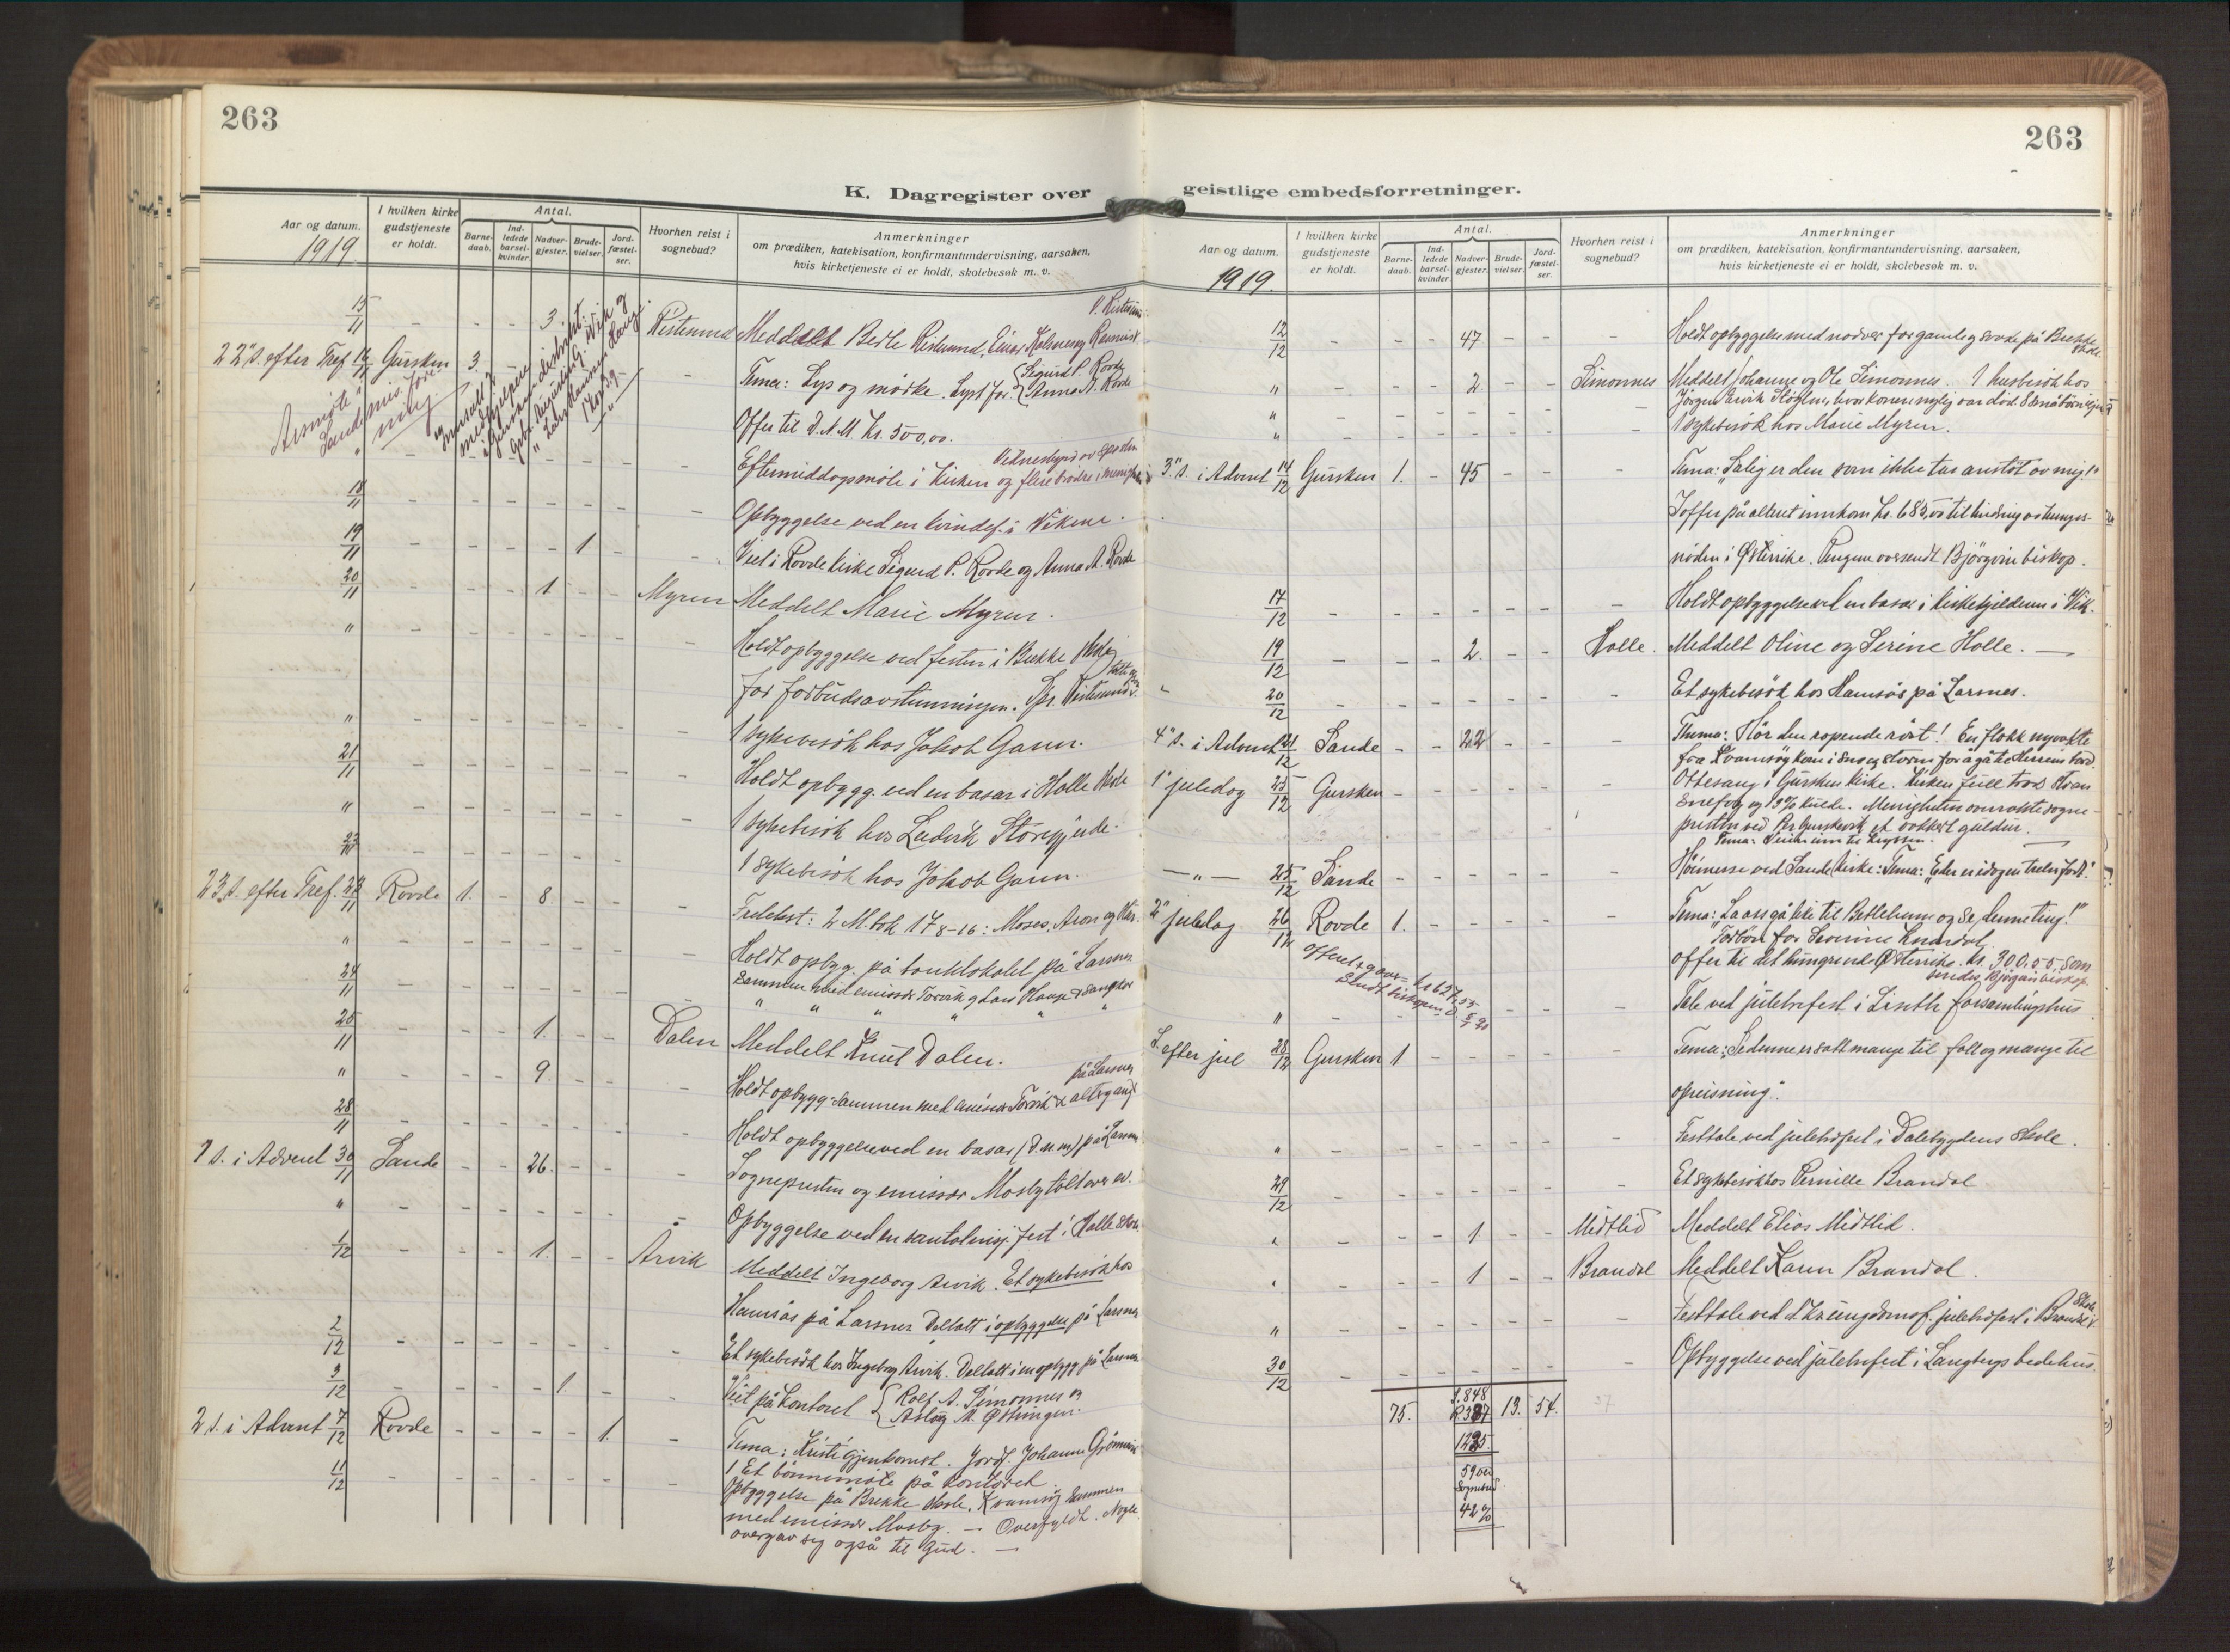 263
263
K. Dagregister over geistlige embedsforretninger.
Aar og datum.
1919
I hvilken kirke gudstjeneste er holdt.
Antal.
Barne-daab.
Ind-ledede barsel-kvinder.
Nadver-gjester.
Brude-vielser.
Jord-fæstel-ser.
Hvorhen reist i sognebud?
Anmerkninger
om prædiken, katekisation, konfirmantundervisning, aarsaken,
hvis kirketjeneste ei er holdt, skolebesøk m. v.
15/11 - - - 3. Ristesund Meddelt Berte Ristesund, Einar
22" s. efter Tref. 16/11 Gursken 3.
Tema: Lys og mörke. Lyst for {Sigurd P. Rovde
Anna A. Rovde
Årsmöte i
Sandsmisfore
ning
Offer til D.N.M. Kr. 500,00.
Eftermiddagsmöte i Kirken og flere brödre i menigh.
18/11 Opbyggelse ved en kvindef. i Vikene.
19/11 - - - - 1 - - Viet i Rovde kirke Sigurd P. Rovde og Anna A. Rovde
20/11 - - - 1 - - Myren Meddelt Marie Myren.
" Holdt opbyggelse ved festen i Brekke skole
for forbudsavstemningen.
" 1 sykebesök hos Jakob Gaun.
21/11 Holdt opbygg. ved en basar i Holle skole
" 1 sykebesök hos Ludvik Storegjerde.
23/11 1 sykebesök hos Jakob Gaun.
23. s. efter Tref. 23/11 Rovde 1. - 8 - - -
Tekst: 2 M. bok 17 8-16: Moses, Aron og Hur.
" Holdt opbyg. på banklokalet på Larsnes
24/11 sammen med emissær Torvik og Lars Hauge
25/11 - - - 1. - - Dalen Meddelt Knut Dalen.
" - - - 9. - - - Holdt opbygg. sammen med emissær Torvik altergang på Larsnes
28/11 Holdt opbyggelse ved en basar (D.N.M.) på Larsnes
1 s. i Advent 30/11 Sande - - 26. - - - Sognepresten og emissær Mosby talte over ev.
" Opbyggelse ved en santalmisj. fest i Holle skole
1/12 - - - 1. - - Årvik Meddelt Ingeborg Arvik. Et sykebesök hos
Hamsås på Larsnes Deltatt i opbyggelse på Larsnes
2/12 Et sykebesök hos Ingeborg Arvik. Deltatt i en opbygg. på Larsnes
3/12 - - - - 1. - - Viet på kontoret {Rolf A. Simonnes og
Aslög M. Östringen.
2 s. i Advent 7/12 Rovde - - - - 1. - Tema: Kristi gjenkomst. Jordf. Johanne Grönvik
11/12 1 Et bönnemöte på kontoret.
Opbyggelse på Brekke skole, Kvamsöy sammen
med emissær Mosby. - Overfyldt. Nogle
overgav sig også til Gud. -
Aar og datum.
1919.
I hvilken kirke gudstjeneste er holdt.
Antal.
Barne-daab.
Ind-ledede barsel-kvinder.
Nadver-gjester.
Brude-vielser.
Jord-fæstel-ser.
Hvorhen reist i sognebud?
Anmerkninger
om prædiken, katekisation, konfirmantundervisning, aarsaken,
hvis kirketjeneste ei er holdt, skolebesøk m. v.
12/12 - - - 47 - - - Holdt opbyggelse med nadver for gamle og svake på Brekke skole.
" - - - 2 - - Simonnes Meddelt Johanne og Ole Simonnes. 1 husbesök hos
Jörgen Arvik Höglen, hvis kone nylig var död 8 småbörn igjen
" 1 sykebesök hos Marie Myren.
3" s. i Advent 14/12 Gursken 1. - 45 - - - Tema: "Salig er den som ikke tar anstöt av mig!"
I offer på alteret innkom Kr. 685,00 til lindring av hungers-
nöden i Østerrike. Pengene oversendt Bjørgvin biskop.
17/12 Holdt opbyggelse ved en basar i kirkekjelderen i Vik.
19/12 - - - 2. - - Holle. Meddelt Oline og Serine Holle. -
20/12 Et sykebesök hos Hamsås på Larsnes.
4" s. i Advent 21/12 Sande - - 22 - - - Thema: Hör den ropende röst! En flokk nyvakte
fra Kvamsöy kom i sno og storm for å gå til Herrens bord.
1" juledag 25/12 Gursken Ottesang i Gursken kirke. Kirken full tross
snefog og 13% kulde. Menigheten overrakte sogne-
presten ved Per Gurskevik et vakkert guldur.
-"- 25/12 Sande Höimesse ved Sande kirke: Tema: "Eder er idag en frelser født."
2" juledag 26/12 Rovde 1. Tema: "La oss gå like til Betlehem og se denne ting!"
Forbön for Severine Kvandal.
offer til det hungrende Østerrike. Kr. 300,55, som
sendes Bjørgvin biskop.
Tale ved juletrefest i Liset forsamlingshus
S. efter jul 28/12 Gursken 1 Tema: "Se denne er satt mange til fall og mange til
opreisning".
" Festtale ved juletrefest i Dalebygdens skole.
29/12 Et sykebesök hos Pernille Brandal
" - - - 1 - - Midtlid Meddelt Elias Midtlid.
" - - - 1 - - Brandal Meddelt Karen Brandal.
" Festtale ved d. kr. ungdomsf. juletrefest i Brandal skole.
30/12 Opbyggelse ved juletrefest i Langbergs bedehus.
75. S. 848 13. 54.
R. 387
1235.
59 ved
Sognebud.
42%